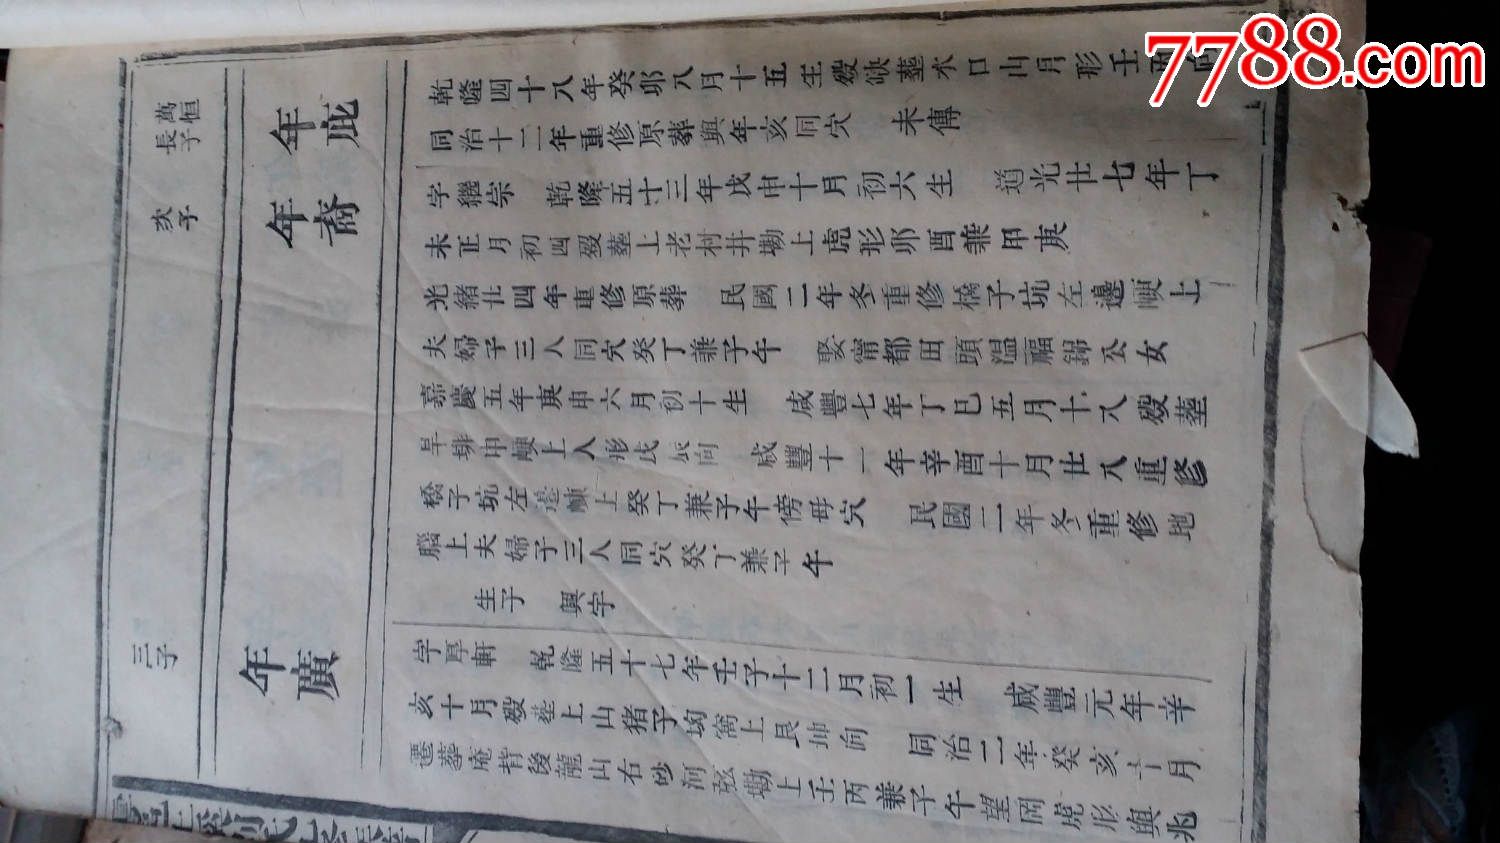 7788.com
萬恒長子
年庇
乾隆四十八年癸卯八月十五生殁缺葬水口山月形壬丙向
同治十二年重修原葬與年亥同穴 未傳
次子
年裔
字繼宗 乾隆五十三年戊申十月初六生 道光廿七年丁
未正月初四殁葬上老村井塝上虎形卯酉兼甲庚
光緒廿四年重修原葬 民國二年冬重修橋子坑左邊㟨上
夫婦子三人同穴癸丁兼子午 娶甯都田頭溫福錦公女
嘉慶五年庚申六月初十生 咸豐七年丁巳五月十八殁葬
旱排中㟨上人形戌辰向 咸豐十一年辛酉十月廿八重修
橋子坑左邊㟨上癸丁兼子午傍母穴 民國二年冬重修地
腦上夫婦子三人同穴癸丁兼子午
生子 興字
三子
年廣
字厚軒 乾隆五十七年壬子十二月初一生 咸豐元年辛
亥十月殁葬上山猪子㘭窩上艮坤向 同治二年癸亥十月
遷葬庵背後龍山右砂河弦塝上壬丙兼子午望岡虎形與兆